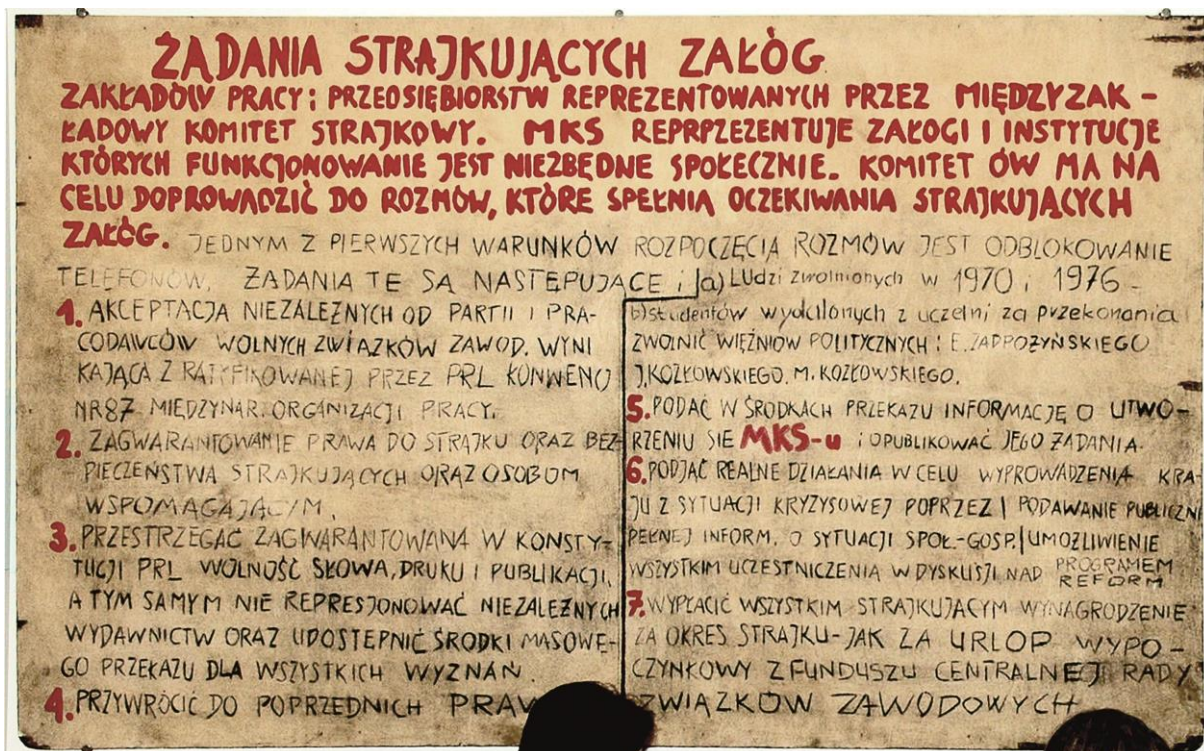 ŻĄDANIA STRAJKUJĄCYCH ZAŁÓG
ZAKŁADÓW PRACY i PRZEDSIĘBIORSTW REPREZENTOWANYCH PRZEZ MIĘDZYZAK-
ŁADOWY KOMITET STRAJKOWY. MKS REPRPZEZENTUJE ZAŁOGI I INSTYTUCJE
KTÓRYCH FUNKCJONOWANIE JEST NIEZBĘDNE SPOŁECZNIE. KOMITET ÓW MA NA
CELU DOPROWADZIĆ DO ROZMÓW, KTÓRE SPEŁNIĄ OCZEKIWANIA STRAJKUJĄCYCH
ZAŁÓG. JEDNYM Z PIERWSZYCH WARUNKÓW ROZPOCZĘCIA ROZMÓW JEST ODBLOKOWANIE
TELEFONÓW. ŻĄDANIA TE SĄ NASTĘPUJĄCE :
1. AKCEPTACJA NIEZALEŻNYCH OD PARTII I PRA-
CODAWCÓW WOLNYCH ZWIĄZKÓW ZAWOD. WYNI
KAJĄCA Z RATYFIKOWANEJ PRZEZ PRL KONWENCJ
NR 87 MIĘDZYNAR. ORGANIZACJI PRACY.
2. ZAGWARANTOWANIE PRAWA DO STRAJKU ORAZ BEZ-
PIECZEŃSTWA STRAJKUJĄCYCH ORAZ OSOBOM
WSPOMAGAJĄCYM.
3. PRZESTRZEGAĆ ZAGWARANTOWANĄ W KONSTY-
TUCJI PRL WOLNOŚĆ SŁOWA, DRUKU I PUBLIKACJI,
A TYM SAMYM NIE REPRESJONOWAĆ NIEZALEŻNYCH
WYDAWNICTW ORAZ UDOSTĘPNIĆ ŚRODKI MASOWE-
GO PRZEKAZU DLA WSZYSTKICH WYZNAŃ.
4. PRZYWRÓCIĆ DO POPRZEDNICH PRAW
a) Ludzi zwolnionych w 1970 i 1976 -
b) studentów wydalonych z uczelni za przekonania
ZWOLNIĆ WIĘŹNIÓW POLITYCZNYCH : E. ZADROŻYŃSKIEGO
J. KOZŁOWSKIEGO. M. KOZŁOWSKIEGO.
5. PODAĆ W ŚRODKACH PRZEKAZU INFORMACJĘ O UTWO-
RZENIU SIĘ MKS-u i OPUBLIKOWAĆ JEGO ŻĄDANIA.
6. PODJĄĆ REALNE DZIAŁANIA W CELU WYPROWADZENIA KRA-
JU Z SYTUACJI KRYZYSOWEJ POPRZEZ | PODAWANIE PUBLICZNI
PEŁNEJ INFORM. O SYTUACJI SPOŁ.-GOSP. | UMOŻLIWIENIE
WSZYSTKIM UCZESTNICZENIA W DYSKUSJI NAD PROGRAMEM REFORM
7. WYPŁACIĆ WSZYSTKIM STRAJKUJĄCYM WYNAGRODZENIE
ZA OKRES STRAJKU - JAK ZA URLOP WYPO-
CZYNKOWY Z FUNDUSZU CENTRALNEJ RADY
ZWIĄZKÓW ZAWODOWYCH